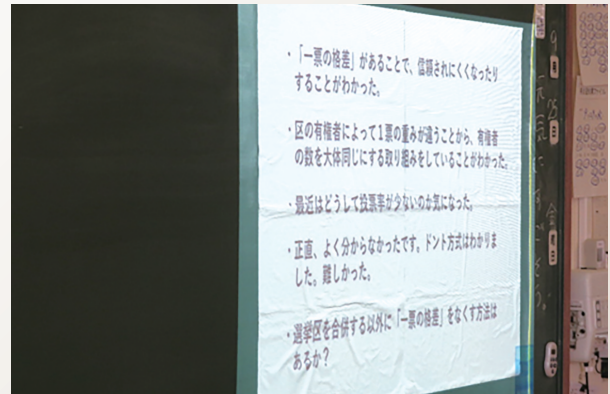 ・「一票の格差」があることで、信頼されにくくなったり
することがわかった。
・区の有権者によって1票の重みが違うことから、有権者
の数を大体同じにする取り組みをしていることがわかった。
・最近はどうして投票率が少ないのか気になった。
・正直、よく分からなかったです。ドント方式はわかりま
した。難しかった。
・選挙区を合併する以外に「一票の格差」をなくす方法は
あるか?
9
月
25
日
金
曜
日